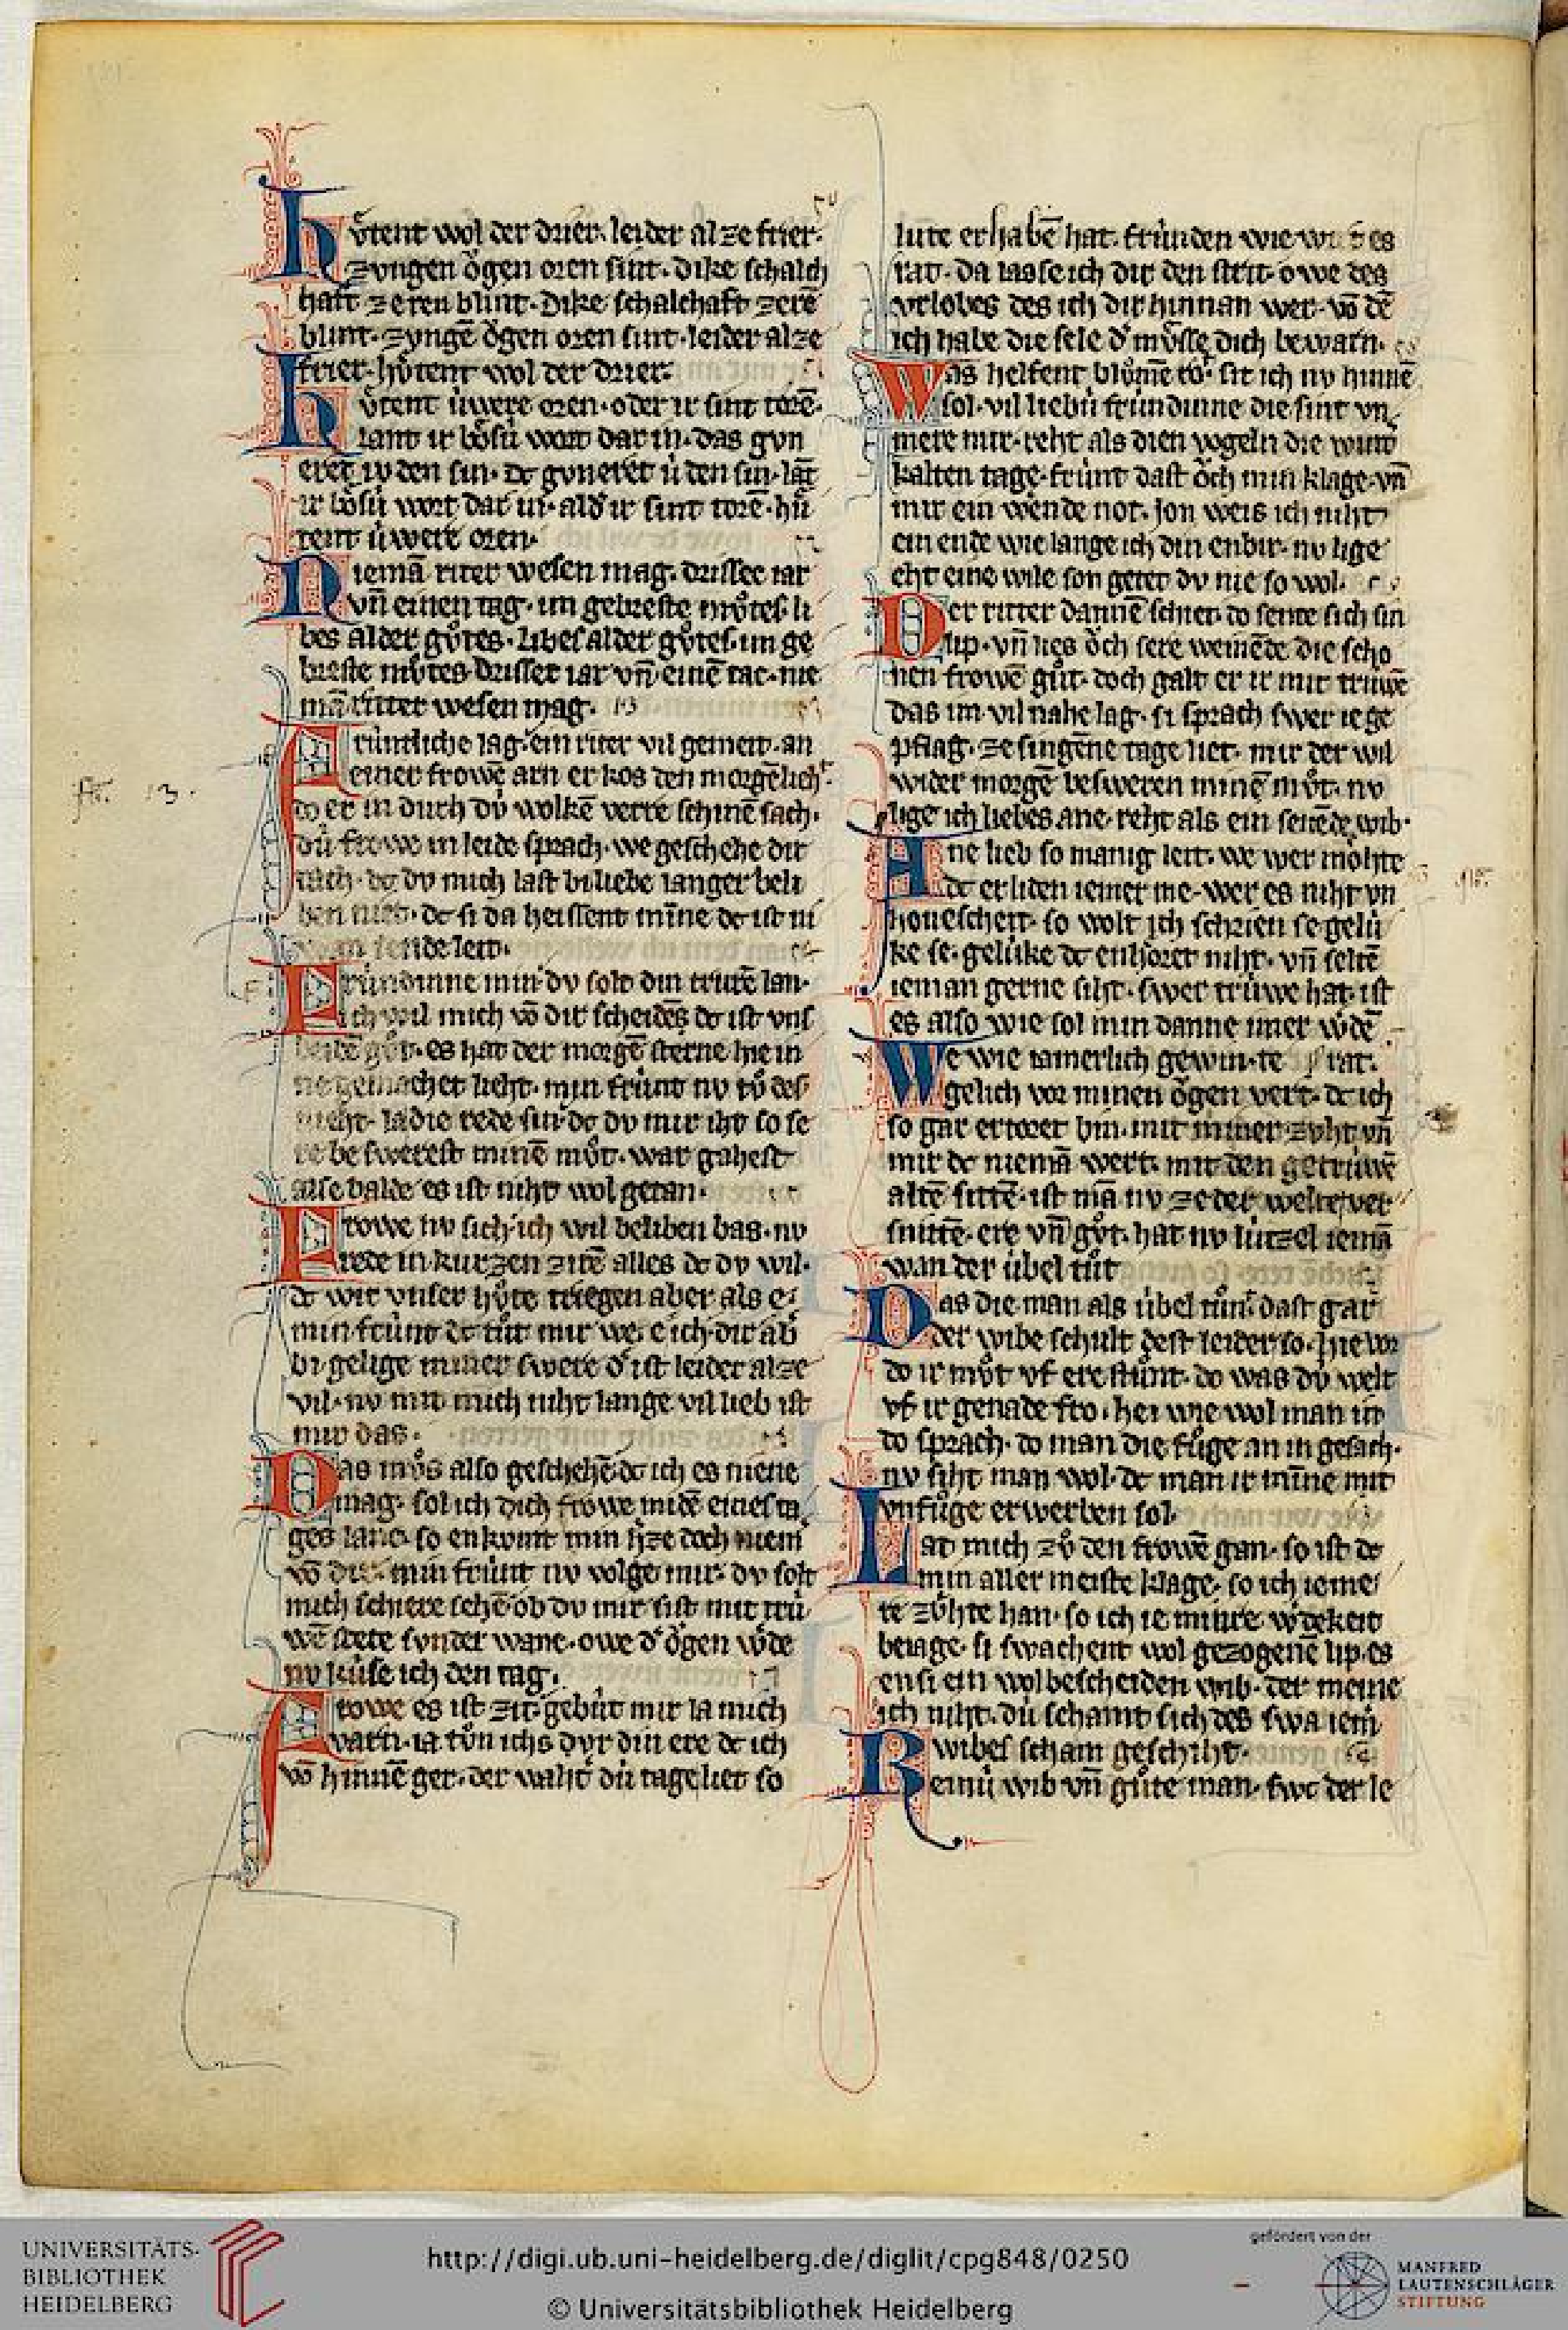 hv̊tent wol der drier. leider al ze frier.
zvngen ôgen oren sint. dike schalch
haft zeren blint. dike schalchaft zerē
blint. zvngē ôgen oren sint. leider al ze
frier. hv̊tent wol der drier.
hv̊tent úwere oren. oder ir sint torē.
lant ir bôsú wort dar in. das gvn
eret iv den sin. dc gvneret ú den sin. lāt
ir bôsú wort dar in. ald ir sint torē. hú
tent úwere oren.
Niemā riter wesen mag. drissec iar
vn̄ einen tag. im gebreste mv̊tes. li
bes alder gv̊tes. libes alder gv̊tes. im ge
breste mv̊tes. drisset iar vn̄ einē tac. nie
mā ritter wesen mag.
Frúntliche lag. ein riter vil gemeit. an
einer frowē arn er kos den morgēlieht.
do er in durh dú wolkē verre schinē sach.
dú frowe in leide sprach. we geschehe dir
tach. dc dv mich last bi liebe langer beli
ben niet. dc si da heissent mīne dc ist ni
wan sende leit.
Frúndinne min dv solt din trurē lan.
ich wil mich vō dir scheidē dc ist vns
beidē gv̊t. es hat der morgē sterne hie in
ne gemachet lieht. min frúnt nv tv̊ des
nieht. la die rede sin dc dv mir iht so se
re beswerest minē mv̊t. war gahest
alse balde es ist niht wol getan.
Frowe nv sich ich wil beliben bas. nv
rede in kurzen zitē alles dc dv wil.
dc wir vnser hv̊te triegen aber als e.
min frúnt dc tůt mir we. e ich dir ab̄
bi gelige miner swere d̓ ist leider al ze
vil. nv mit mich niht lange vil lieb ist
mir das.
Das mv̊s also geschehē dc ich es niene
mag. sol ich dich frowe midē eines ta
ges lanc. so enkomt min h̓ze doch niem̄
vō dir. min frúnt nv volge mir. dv solt
mich schiere sehē ob dv mir sist mit trú
wē stete svnder wanc. owe d̓ ôgen wōde
nv kúse ich den tag.
Frowe es ist zit. gebút mir la mich
varn. ia tůn ichs dvr din ere dc ich
vō hinnē ger. der waht dú tageliet so
lute erhabē hat. frúnden wie wirt es
rat. da lasse ich dir den strit. owe des
vrlobes des ich dir hinnan wer. vō dē
ich habe die sele d̓ mv̊sse dich bewarn.
Was helfent blůmē rot. sit ich nv hinnē
sol. vil liebú frúndinne die sint vn
mere mir. reht als dien vogeln die wint
kalten tage. frúnt dast ôch min klage. vn̄
mir ein wende not. ion weis ich niht
ein ende wie lange ich din enbir. nv lige
eht eine wile son getet dv nie so wol.
Der ritter dannē schiet. do sente sich sin
lip. vn̄ lies ôch sere weinēde die scho
nen frowē gůt. doch galt er ir mit trúwē
das im vil nahe lag. si sprach swer ie ge
pflag. ze singēne tage liet. mir der wil
wider morgē besweren minē mv̊t. nv
lige ich liebes ane. reht als ein senēde wib.
Ane lieb so manig leit. we wer môhte
dc erliden iemer me. wer es niht vn
houescheit. so wolt ich schrien se gelú
ke se. gelúke dc enhôret niht. vn̄ seltē
ieman gerne siht. swer trúwe hat. ist
es also wie sol min danne imer wōdē
We wie iamerlich gewin. te rat.
gelich vor minen ôgen vert. dc ich
so gar ertoret bin. mit miner zvht vn̄
mir dc niemā wert. mit den getrúwē
altē sittē. ist mā nv ze der welte ver
snittē. ere vn̄ gv̊t. hat nv lútzel iemā
wan der úbel tůt
Das die man als úbel tůnt dast gar
der wibe schult dest leider so. hie vor
do ir mv̊t vf ere stůnt. do was dú welt
vf ir genade fro. hei wie wol man in
do sprach. do man die fůge an in gesach.
nv siht man wol. dc man ir mīne mit
vnfůge erwerben sol.
Lat mich zv̊ den frowē gan. so ist dc
min aller meiste klage. so ich ieme
re zúhte han. so ich ie minre w̓dekeit
beiage. si swachent wol gezogenē lip. es
ensi ein wol bescheiden wib. der meine
ich niht. dú schamt sich des swa iem̄
wibes scham geschiht.
Reinú wib vn̄ gůte man. swc der le
UNIVERSITÄTS-
BIBLIOTHEK
HEIDELBERG
http://digi.ub.uni-heidelberg.de/diglit/cpg848/0250
© Universitätsbibliothek Heidelberg
gefördert von der
MANFRED
LAUTENSCHLÄGER
STIFTUNG